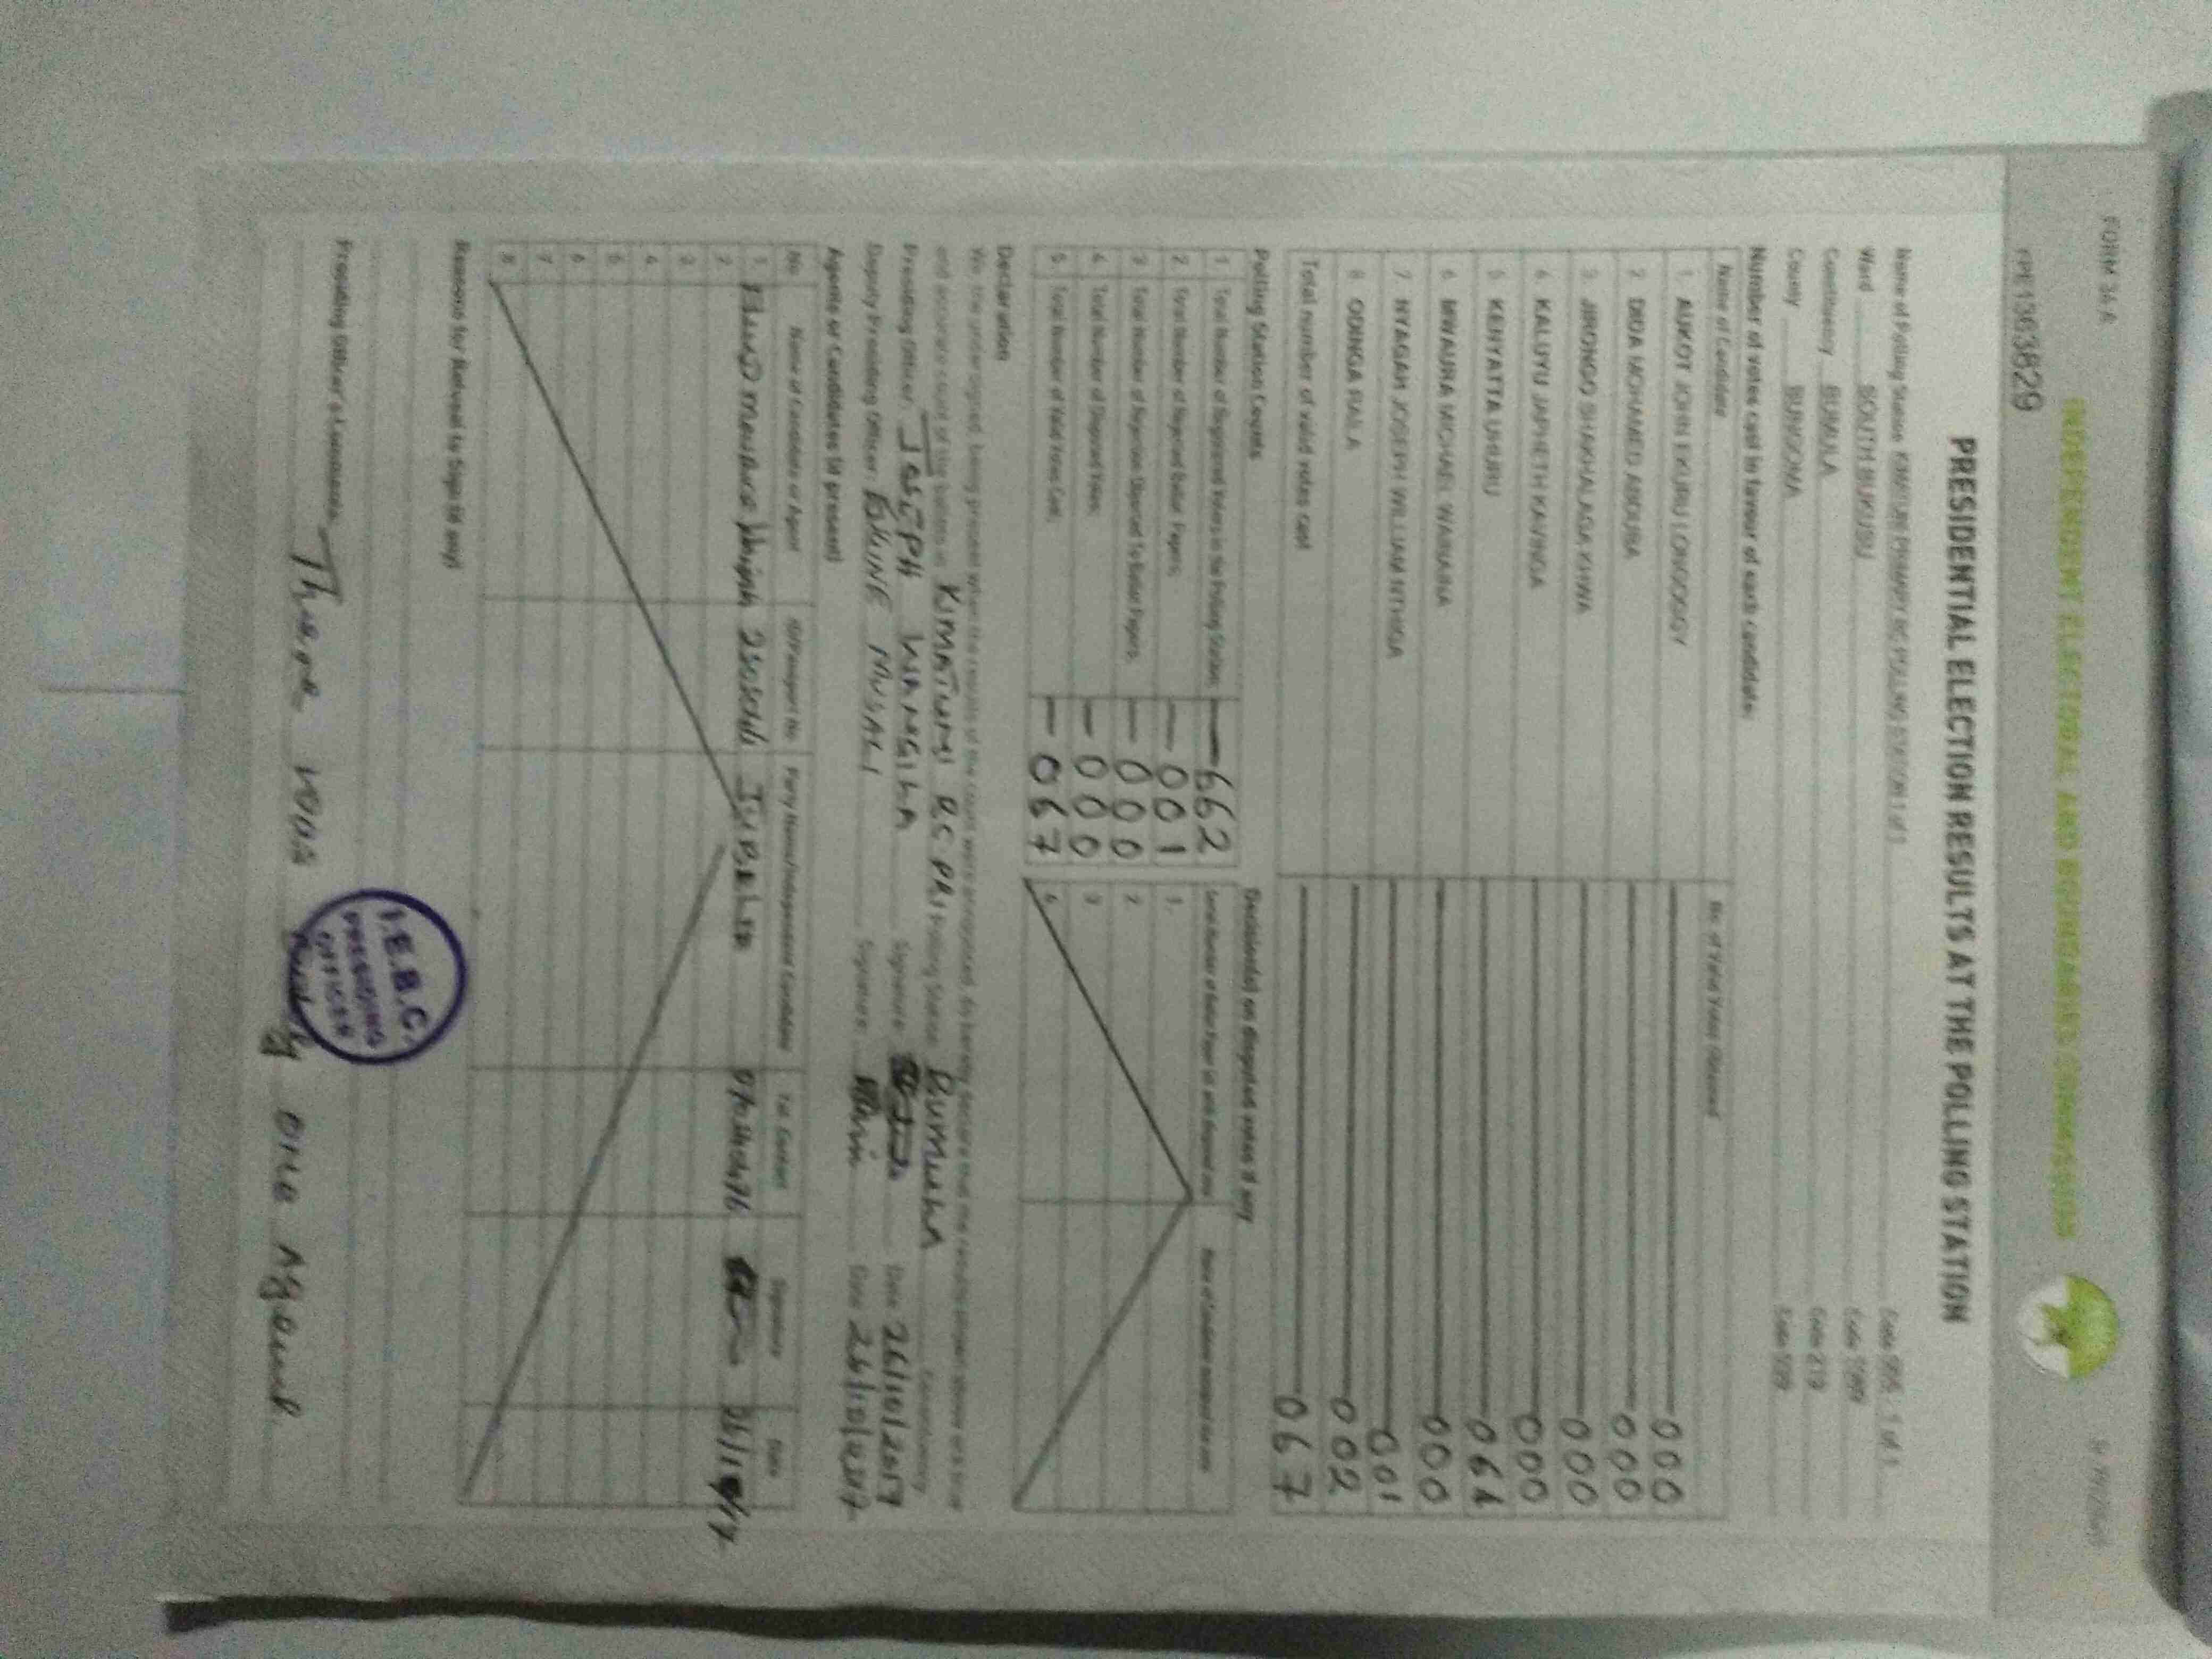 FORM 34 A
INDEPENDENT ELECTORAL AND BOUNDARIES COMMISSION
PRESIDENTIAL ELECTION RESULTS AT THE POLLING STATION
Name of Polling Station
Ward SOUTH BUKUSU
Constituency BUMULA Code 219
County BUNGOMA
Number of votes cast in favour of each candidate:
Name of Candidate No. of Valid Votes Obtained
1. AUKOT JOHN EKURU LONGOGGY 000
2. DIDA MOHAMED ABDUBA 000
3. JIRONGO SHAKHALAGA KHWA 000
4. KALUYU JAPHETH KAVINGA 000
5. KENYATTA UHURU 064
6. MWAURA MICHAEL WAINAINA 000
7. NYAGAH JOSEPH WILLIAM NTHIGA 001
8. ODINGA RAILA 002
Total number of valid votes cast 067
Polling Station Counts
1. Total Number of Registered Voters in the Polling Station; 662
2. Total Number of Rejected Ballot Papers; 001
3. Total Number of Rejection Objected To Ballot Papers; 000
4. Total Number of Disputed Votes; 000
5. Total Number of Valid Votes Cast; 067
Decision(s) on disputed votes if any
1.
2
3
4
Declaration
We, the undersigned, being present when the results of the count were announced, do hereby declare that the results shown above are a true
and accurate count of the ballots in KIMATUNI RC PRI Polling Station BUMULA Constituency
Presiding Officer: JOSEPH WAMGILA Signature Date 26/10/2017
Deputy Presiding Officer: MUSALI Signature Date 26/10/2017
Agents or Candidates (if present)
No. Name of Candidate or Agent ID/Passport No. Party Name/Independent Candidate Tel. Contact Signature Date
1 JUBELEE
2
3
4
5
6
7
8
Reasons for Refusal to Sign (if any)
Presiding Officer's Comments
There was only one Agent
I.E.B.C.
PRESIDING
OFFICER